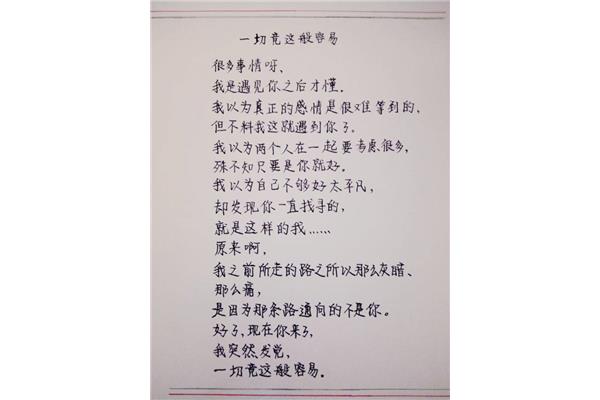 一切竟这般容易
很多事情呀、
我是遇见你之后才懂.
我以为真正的感情是很难等到的、
但不料我这就遇到你了。
我以为两个人在一起要考虑很多,
殊不知只要是你就好。
我以为自己不够好太平凡,
却发现你一直找寻的,
就是这样的我......
原来啊,
我之前所走的路之所以那么灰暗、
那么痛,
是因为那条路通向的不是你。
好了,现在你来了,
我突然发觉,
一切竟这般容易.